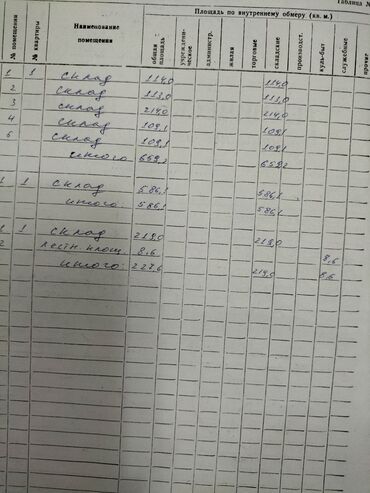 Таблица №
Площадь по внутреннему обмеру (кв. м.)
№ помещения № квартиры Наименование помещения общая площадь учрежденческое администр. жилая торговые складские производст. куль-быт служебные прочие
1 1 склад 114,0 114,0
2 склад 113,0 113,0
3 склад 214,0 214,0
4 склад 109,1 109,1
5 склад 109,1 109,1
итого 659,2 659,2
1 1 склад 586,1 586,1
итого: 586,1 586,1
1 1 склад 219,0 219,0
2 лестн. площ. 8,6 8,6
итого: 227,6 219,0 8,6